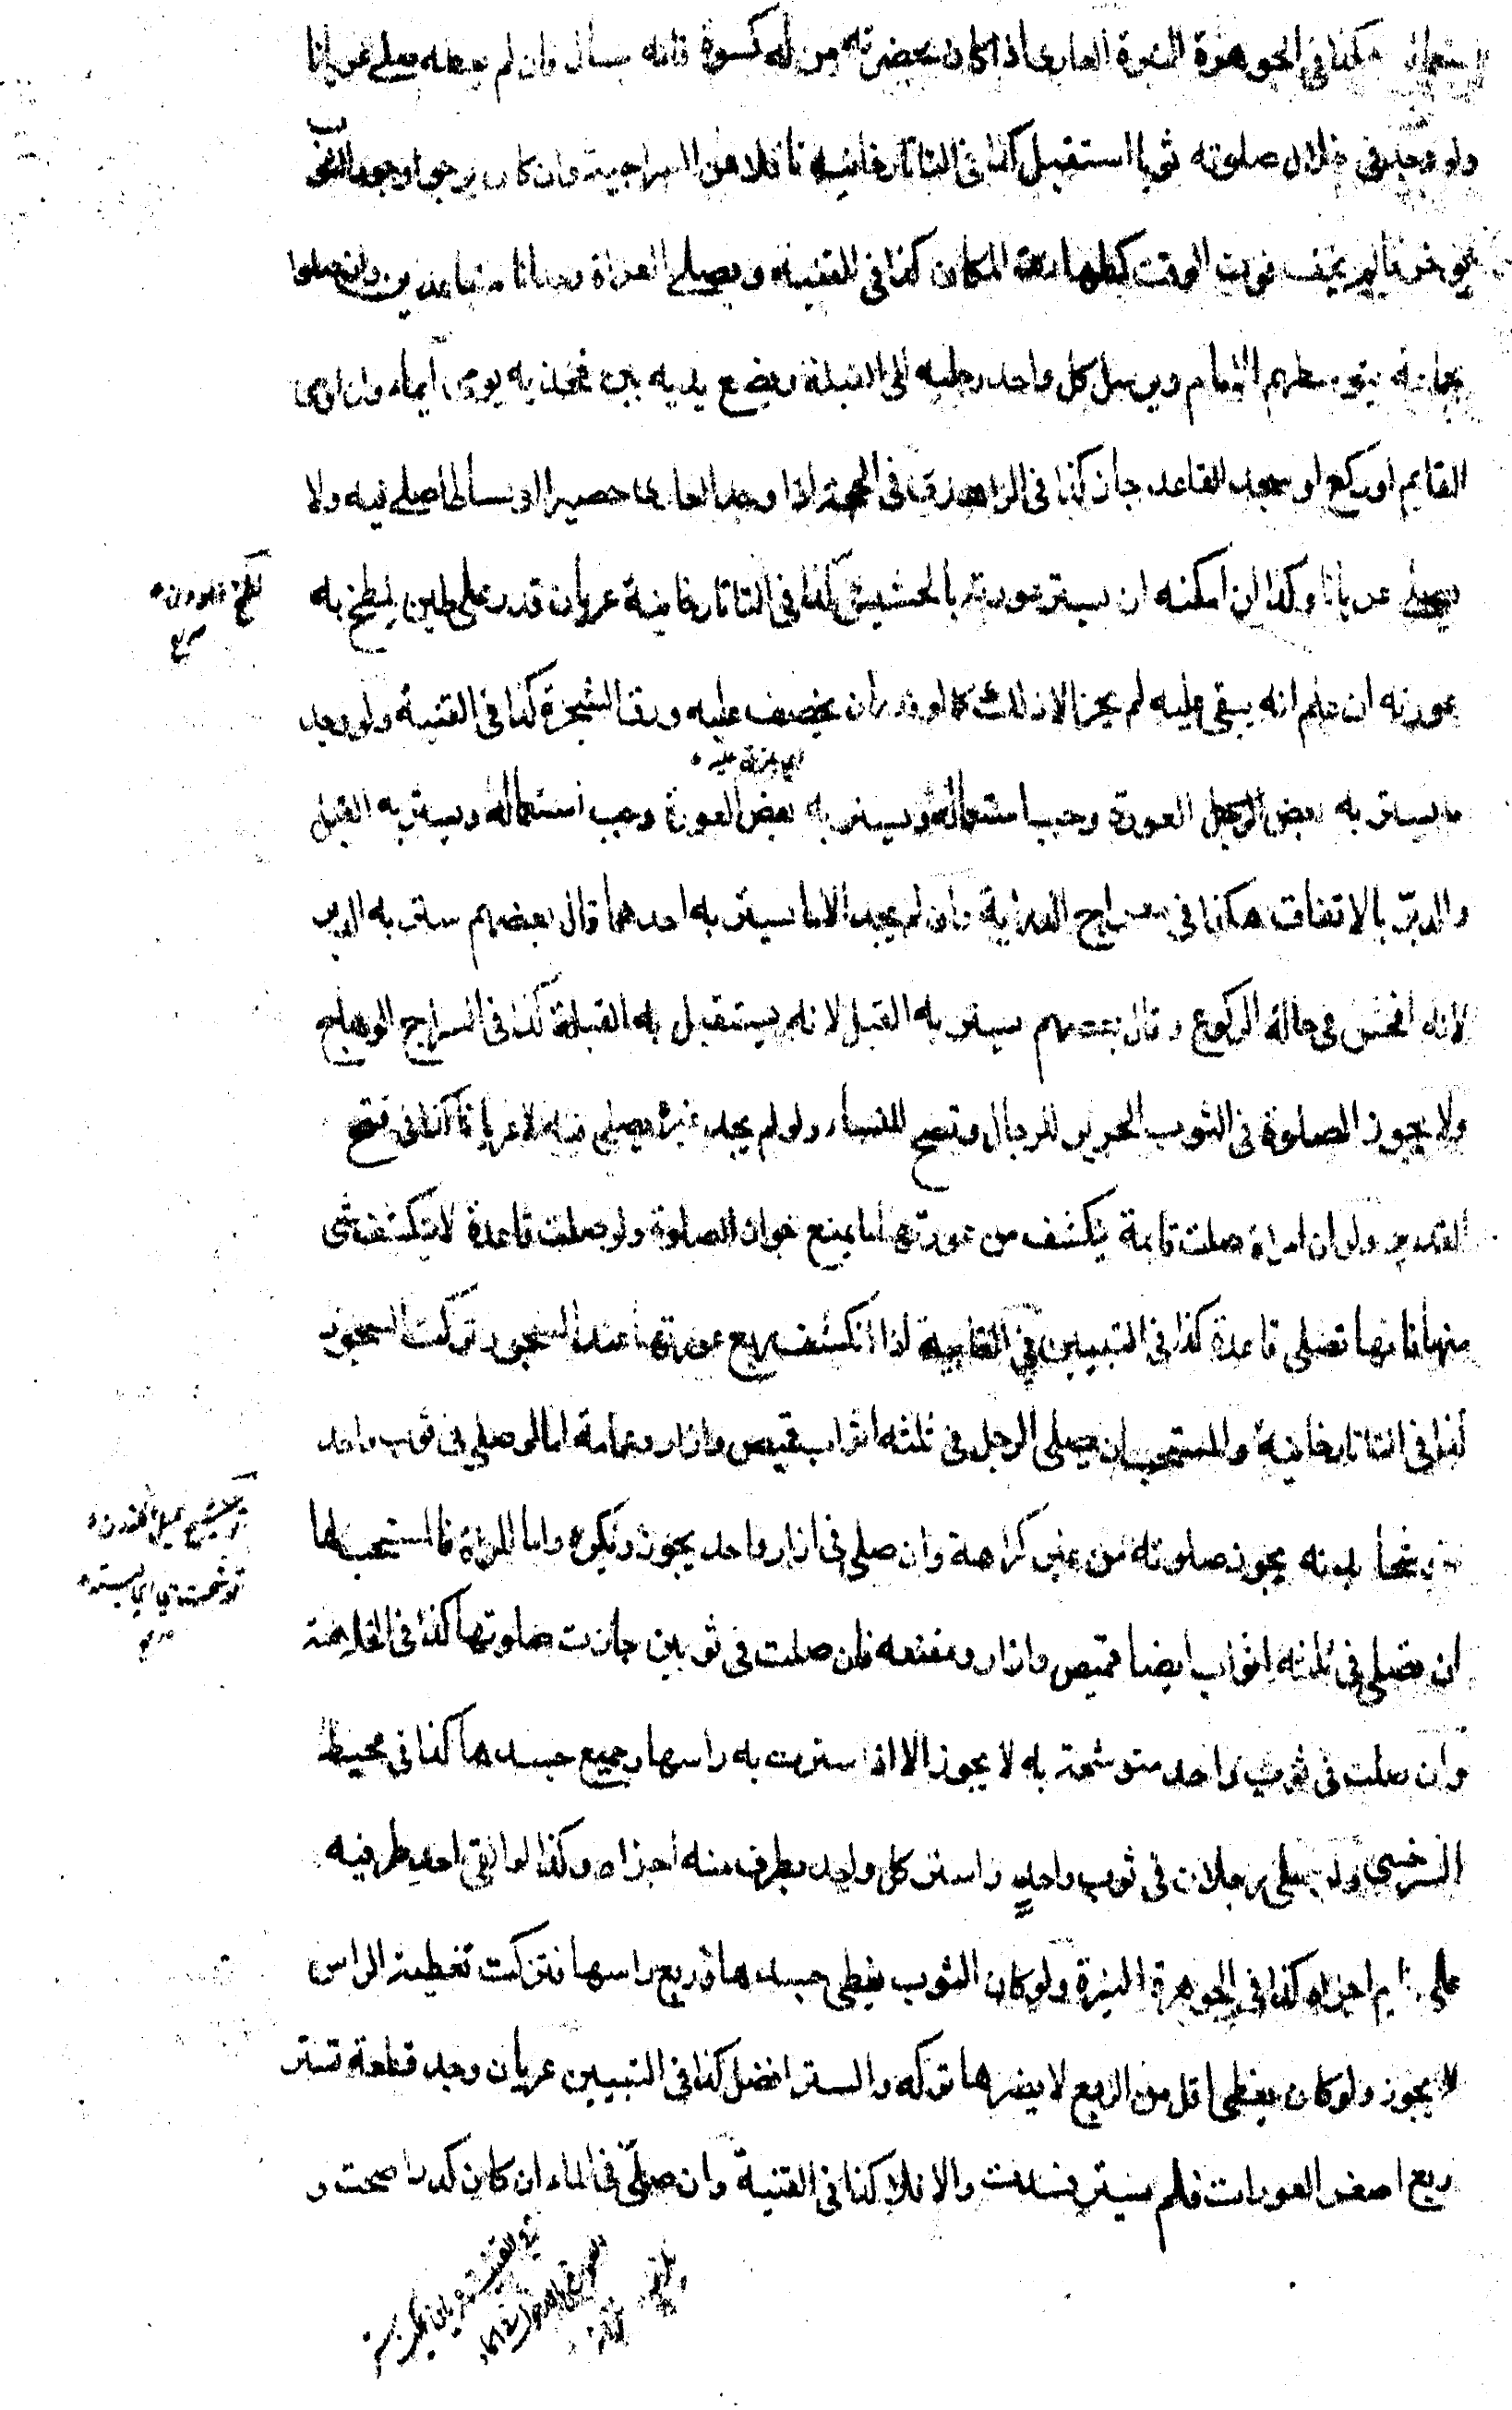 استعماله هكذا في الجوهرة النيرة العاري اذا كان بحضرته من له كسوة فانه يسال فان لم يعطه صلى عريانا
ولو وجد في خلال صلوته ثوبا استقبل كذا في التاتارخانية ناقلا من السراجية وان كان يرجو وجود الثوب
يؤخر ما لم يخف فوت الوقت كطهارة المكان كذا في القنية ويصلي العراة وحدانا متباعدين وان صلوا
بجماعة يتوسطهم الامام ويرسل كل واحد رجليه الى القبلة ويضع يديه بين فخذيه يومي ايماء وان اومى
القايم او ركع او سجد القاعد جاز كذا في الزاهدي في الحجة اذا وجد العاري حصيرا او بساطا صلى فيه ولا
يصلي عريانا وكذا ان امكنه ان يستر عورته بالحشيش كذا في التاتارخانية عريان قدر على طين يلطخ به
عورته ان علم انه يبقى عليه لم يجز الا ذلك كما لو قدر ان يخصف عليه ورق الشجرة كذا في القنية ولو وجد
ما يستر به بعض العورة وجب استعماله ويستر به بعض العورة وجب استعماله ويستر به القبل
والدبر بالاتفاق هكذا في معراج الدراية وان لم يجد الا ما يستر به احدهما قال بعضهم ستر به الدبر
لانه افحش في حالة الركوع وقال بعضهم يستر به القبل لانه يستقبل به القبلة كذا في السراج الوهاج
ولا يجوز الصلوة في الثوب الحرير للرجال وتصح للنساء ولو لم يجد غيره يصلي فيه لا عريانا كذا في فتح
القدير ولو ان امراة صلت قايمة ينكشف من عورتها ما يمنع جواز الصلوة ولو صلت قاعدة لا ينكشف شي
منها فانها تصلي قاعدة كذا في التبيين في العتابية اذا انكشف ربع عورتها عند السجود تركت السجود
كذا في التاتارخانية والمستحب ان يصلي الرجل في ثلثة اثواب قميص وازار وعمامة اما لو صلى في ثوب واحد
متوشحا به بدنه يجوز صلوته من غير كراهة وان صلى في ازار واحد يجوز ويكره واما المراة فالمستحب لها
ان تصلي في ثلثة اثواب ايضا قميص وازار ومقنعة فان صلت في ثوبين جازت صلوتها كذا في الخلاصة
وان صلت في ثوب واحد متوشحة به لا يجوز الا اذا سترت به راسها وجميع جسدها كذا في محيط
السرخسي ولو صلى رجلان في ثوب واحد واستتر كل واحد بطرف منه اجزاه وكذا لو القى احد طرفيه
على نايم اجزاه كذا في الجوهرة النيرة ولو كان الثوب يغطي جسدها وربع راسها فتركت تغطية الراس
لا يجوز ولو كان يغطي اقل من الربع لا يضرها تركه والستر افضل كذا في التبيين عريان وجد قطعة تستر
ربع اصغر العورات فلم يستر فسدت والا فلا كذا في القنية وان صلى في الماء ان كان كدرا صحت و